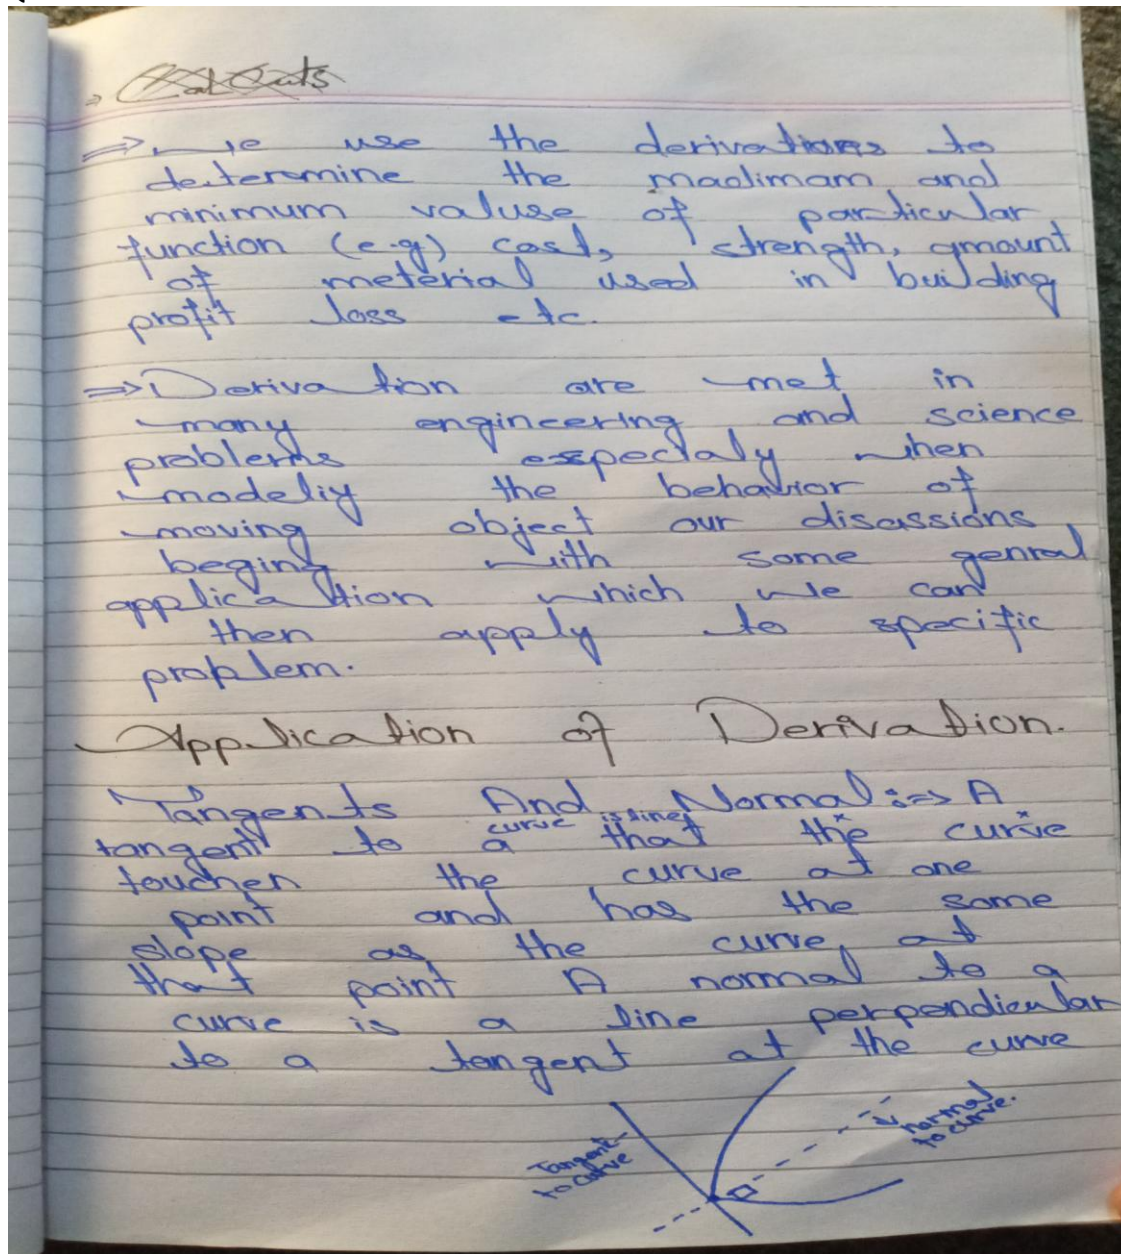 ⇒ we use the derivations to
determine the madimam and
minimum valuse of particular
function (e.g) cost, strength, amount
of meterial used in building
profit loss etc.
⇒ Derivation are met in
many engineering and science
problems especialy when
modeliy the behavior of
moving object our disassions
begins with some genral
application which we can
then apply to specific
problem.
Application of Derivation.
Tangents And Normal :⇒ A
tangent to a curve is line that the curve
touchen the curve at one
point and has the same
slope as the curve at
that point A normal to a
curve is a line perpendicular
to a tangent at the curve
Tangent
to curve
normal
to curve.